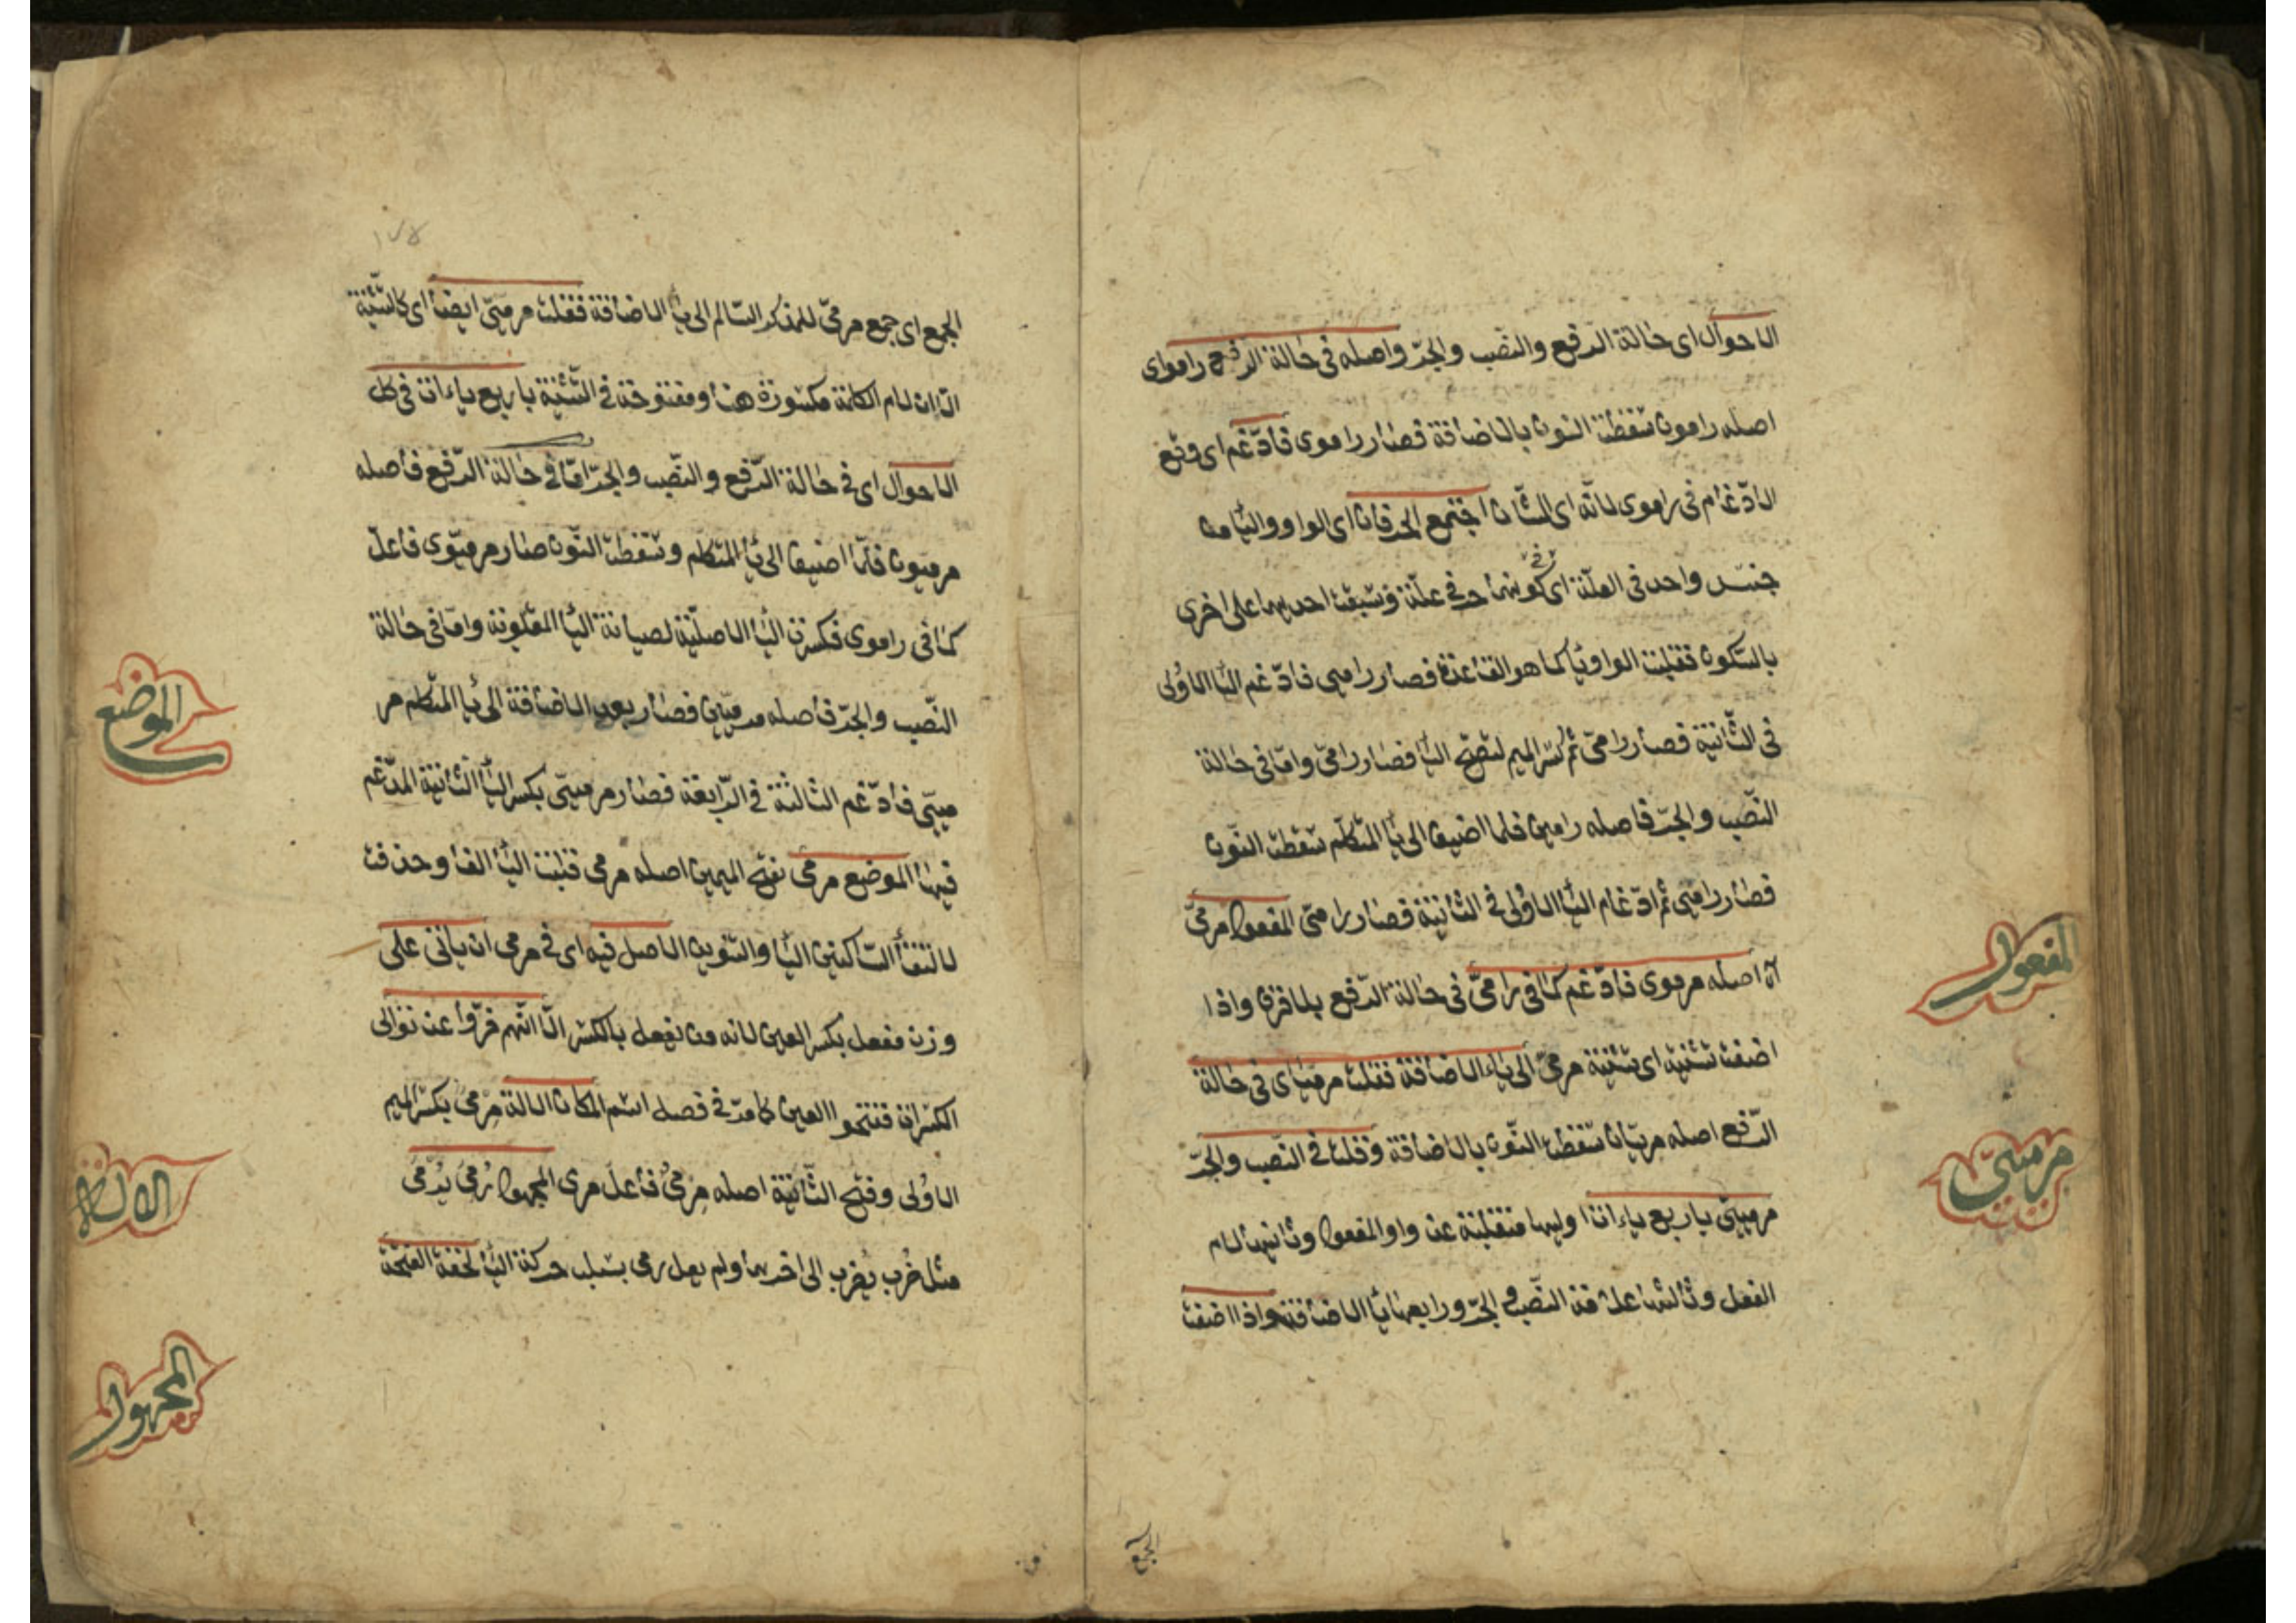 الاحوال اى حالة الرفع والنصب والجر واصله فى حالة الرفع راموى
اصله رامون سقطت النون بالاضافة فصار راموى فادغم اى وقع
الادغام فى راموى لانه اى الشان اجتمع الحرفان اى الواو والياء من
جنس واحد فى العلة اى فى كونهما حرفى علة وسبقت احديهما على اخرى
بالسكون فقلبت الواو ياء كما هو القاعدة فصار رامى فادغم الياء الاولى
فى الثانية فصار رامىّ ثم كسر الميم لتصح الياء فصار رامىّ واما فى حالة
النصب والجر فاصله رامين فلما اضيف الى ياء المتكلم سقطت النون
فصار راميى ثم ادغام الياء الاولى فى الثانية فصار رامىّ المفعول مرمىّ
اه اصله مرموى فادغم كما فى رامىّ فى حالة الرفع بلا فرق واذا
اضفت تثنيته اى تثنية مرمىّ الى ياء الاضافة فقلت مرمياى فى حالة
الرفع اصله مرميان سقطت النون بالاضافة وقلت فى النصب والجر
مرميىّ باربع ياءات اوليها منقلبة عن واو المفعول وثانيها لام
الفعل وثالثها علامة النصب والجر ورابعها ياء الاضافة واذا اضفت
المفعول
مرميىّ
الجمع
١٧٤
الجمع اى جمع مرمىّ للمذكر السالم الى ياء الاضافة فقلت مرميىّ ايضا اى كالتثنية
الا ان لام الكلمة مكسورة هنا ومفتوحة فى التثنية باربع ياءات فى كل
الاحوال اى فى حالة الرفع والنصب والجر اما فى حالة الرفع فاصله
مرميون فلما اضيف الى ياء المتكلم وسقطت النون صار مرميوى فاعل
كما فى راموى فكسرت الياء الاصلية لصيانة الياء المقلوبة واما فى حالة
النصب والجر فاصله مرميين فصار بعد الاضافة الى ياء المتكلم مر
ميىّ فادغم الثالثة فى الرابعة فصار مرميىّ بكسر الياء الثانية المدغم
فيها الموضع مرمى بفتح الميمين اصله مرمى قلبت الياء الفا وحذفت
لالتقاء الساكنين الياء والتنوين الاصل فيه اى فى مرمى ان ياتى على
وزن مفعل بكسر العين لانه من يفعل بالكسر الا انهم فروا عن توالى
الكسرات ففتحوا العين كما مر فى فصل اسم المكان الالة مرمى بكسر الميم
الاولى وفتح الثانية اصله مرمى فاعل مرى المجهول رمى يرمى
مثل ضرب يضرب الى اخرهما ولم يعل رمى بسلب حركة الياء لخفة الفتحة
الموضع
الالة
المجهول